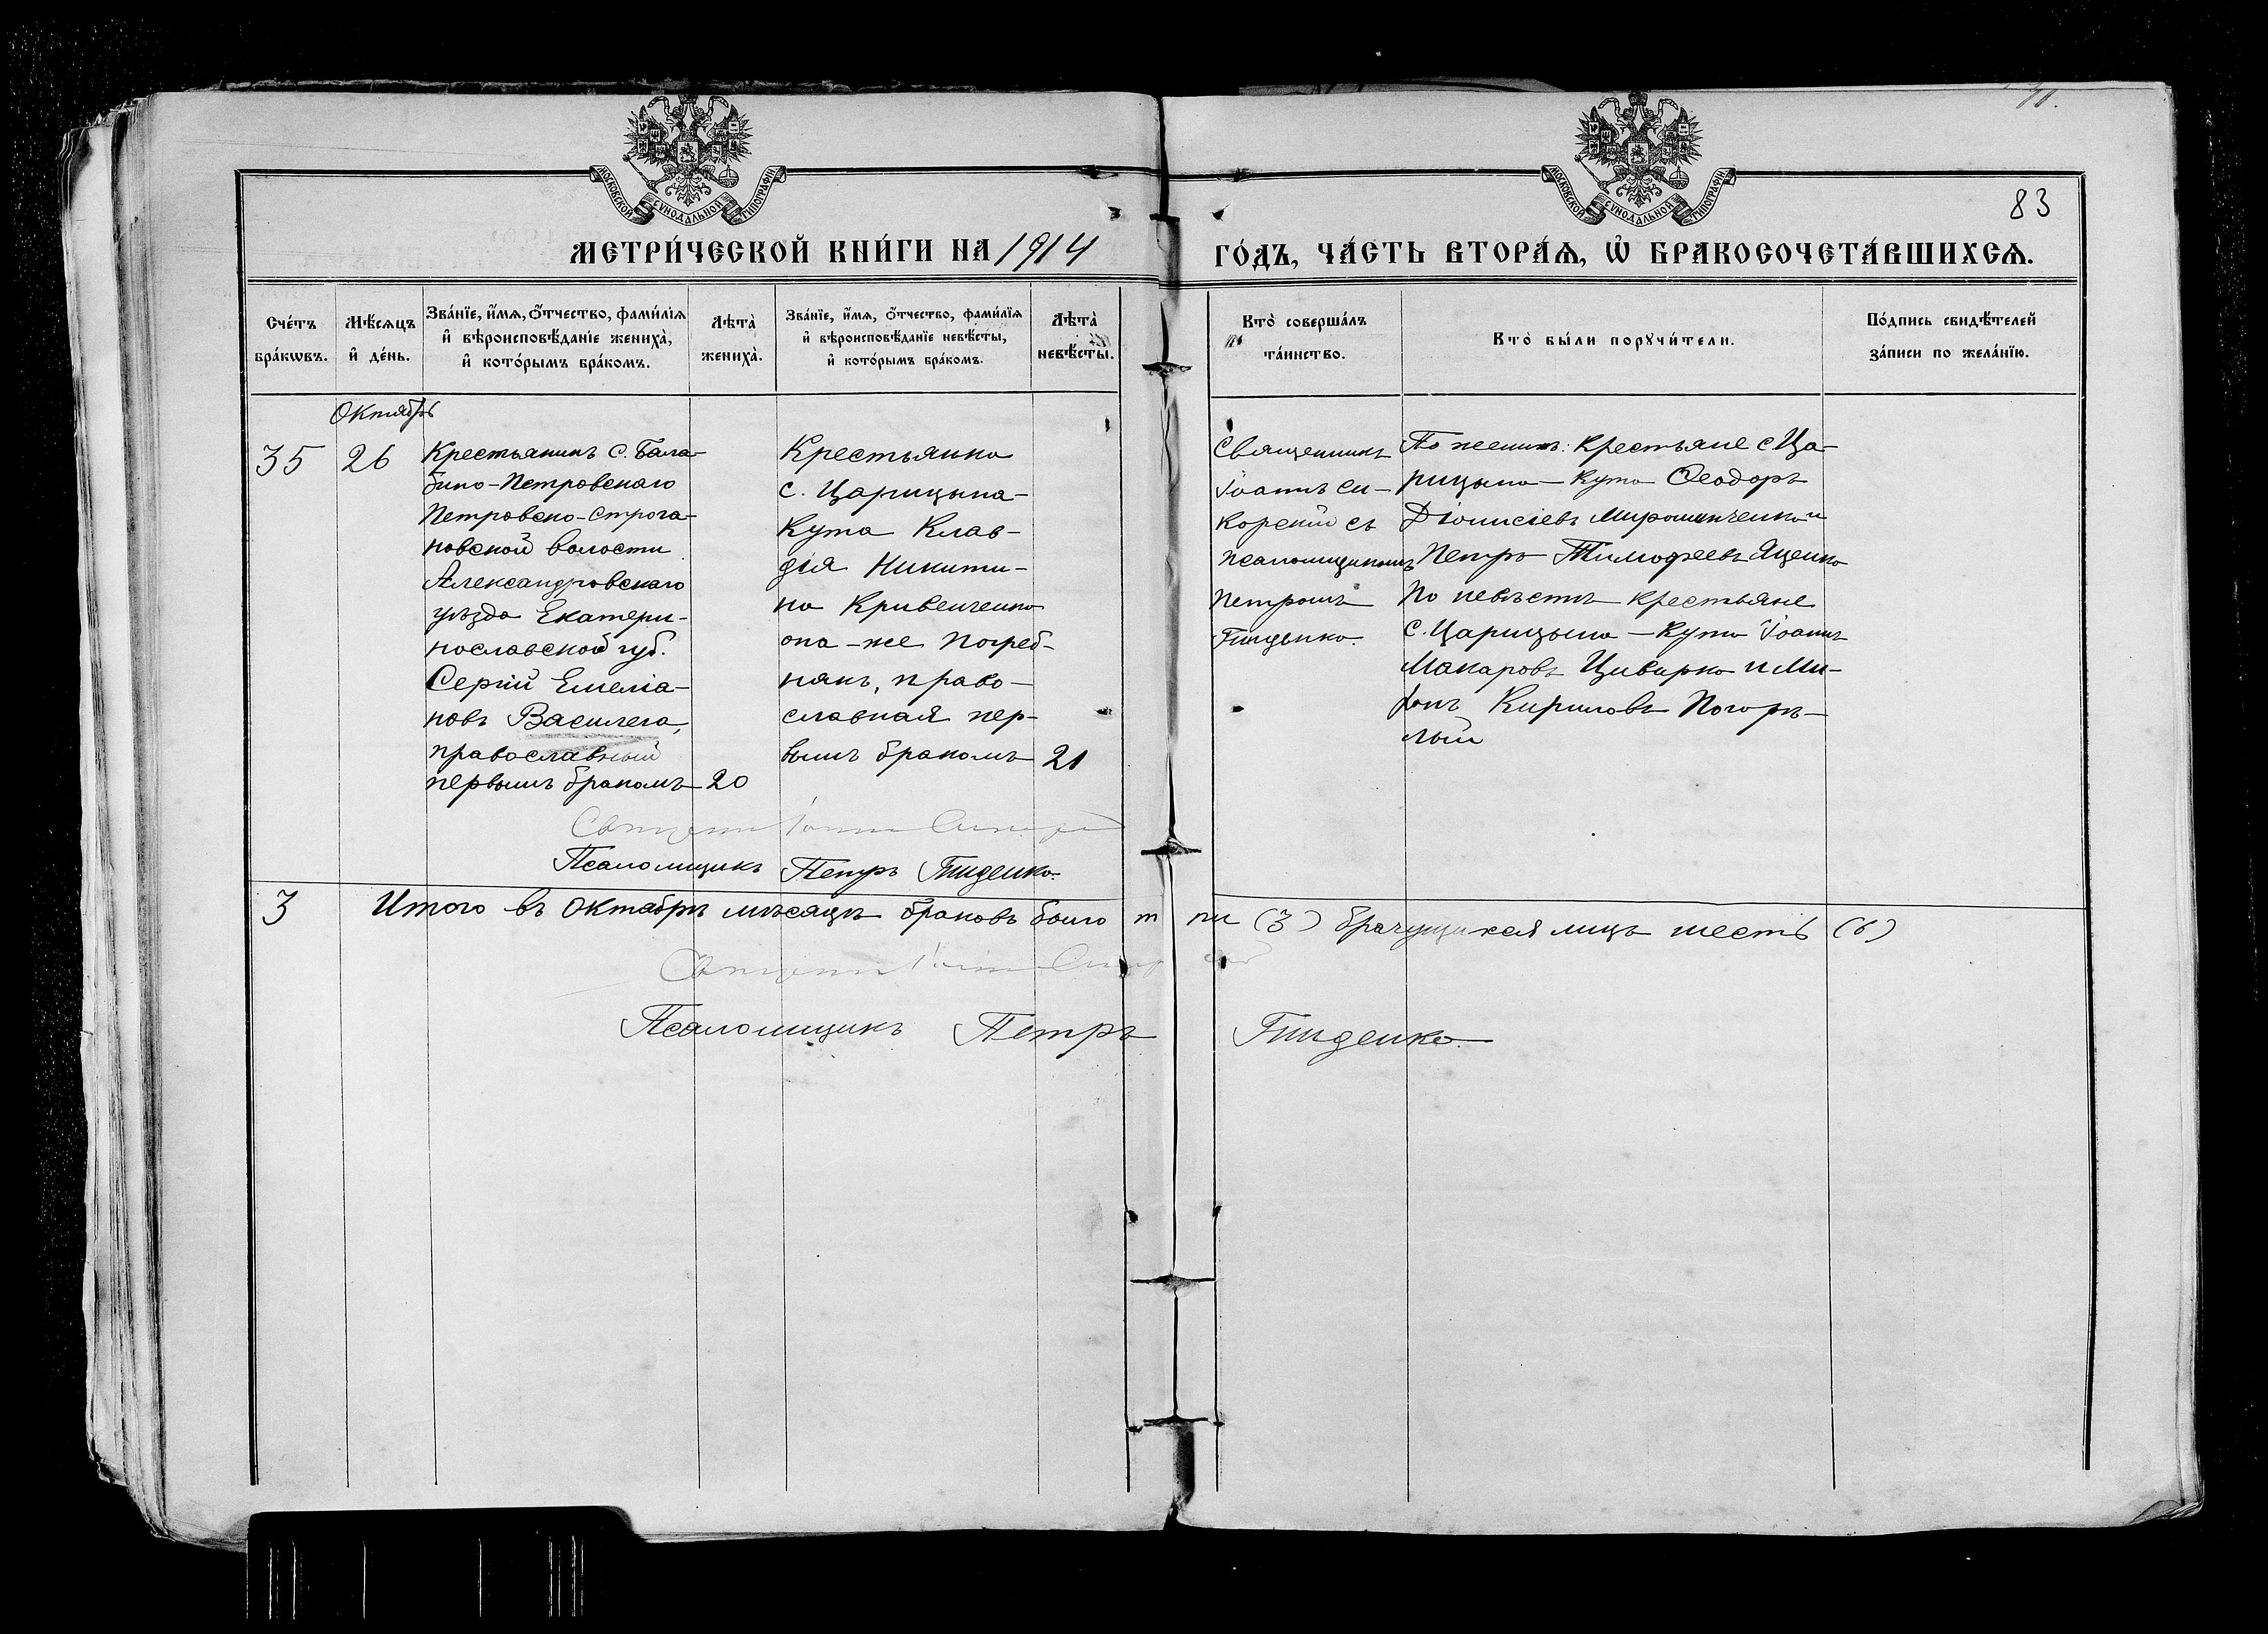 МОСКОВСКОЙ СУНОДАЛЬНОЙ ТИПОГРАФІИ
МОСКОВСКОЙ СУНОДАЛЬНОЙ ТИПОГРАФІИ
83
МЕТРИ́ЧЕСКОЙ КНИ́ГИ НА 1914
ГО́ДЪ, ЧА́СТЬ ВТОРА́Ѧ, Ѽ БРАКОСОЧЕТА́ВШИХСѦ.
Сче́тъ бра́кѡвъ.
Мѣ́сяцъ и҆ де́нь.
Зва́нїе, и҆́мѧ, ѻ҆́тчество, фами́лїѧ и҆ вѣроисповѣ́данїе жениха̀, и҆ кото́рымъ бра́комъ.
Лѣта̀ жениха̀.
Зва́нїе, и҆́мѧ, ѻ҆́тчество, фами́лїѧ и҆ вѣроисповѣ́данїе невѣ́сты, и҆ кото́рымъ бра́комъ.
Лѣта̀ невѣ́сты.
Кто̀ соверша́лъ та́инство.
Кто̀ бы́ли порꙋчи́тели.
По́дпись свидѣ́телей за́писи по жела́нїю.
Октябрь
35
26
Крестьянинъ с. Бала-
бино-Петровскаго
Петровско-Строга-
новской волости
Александровскаго
уѣзда Екатери-
нославской губ.
Сергій Емелiа-
новъ Василега,
православный
первымъ бракомъ
20
Крестьянка
с. Царицына-
Кута Клав-
дія Никити-
на Кривенченко
она-же Погреб-
някъ, право-
славная пер-
вымъ бракомъ
21
Священникъ
Іоаннъ Си-
корскій съ
псаломщикомъ
Петромъ
По женихѣ: крестьяне с Ца-
рицына-Кута Ѳеодоръ
Діонисіевъ Мирошниченко и
Петръ Тимофеевъ Яценко
По невѣстѣ крестьяне
с. Царицына-Кута Іоаннъ
Макаровъ Цивирко и Ми-
ронъ Кириловъ Погорѣ-
лый
Псаломщикъ Петръ
3
Итого въ Октябрѣ мѣсяцѣ браковъ было три (3) брачущихся лицъ шесть (6)
Псаломщикъ Петръ